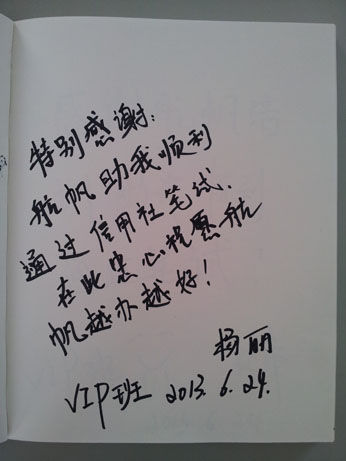 特别感谢:
航帆助我顺利
通过信用社笔试.
在此忠心祝愿航
帆越办越好!
杨丽
VIP班 2013.6.24.